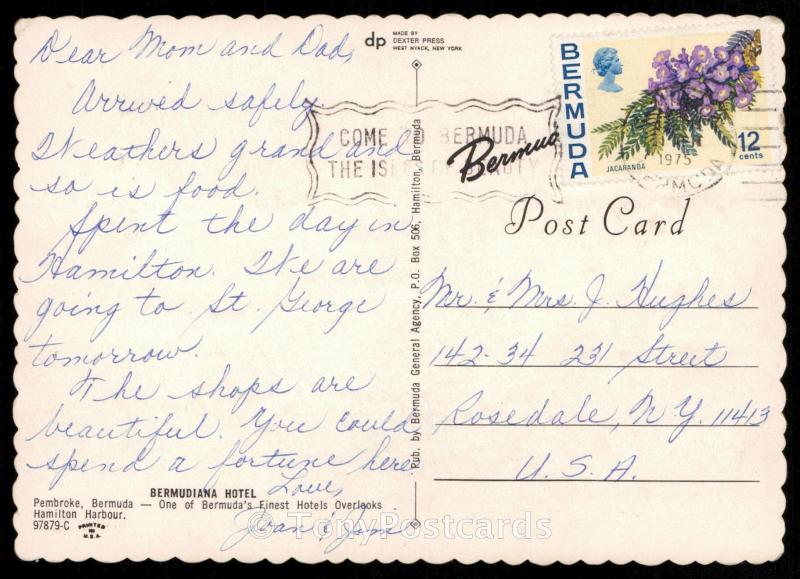 Dear Mom and Dad,
Arrived safely.
Weathers grand and
so is food.
Spent the day in
Hamilton. We are
going to St. George
tomorrow.
The shops are
beautiful. You could
spend a fortune here.
Love,
Joan & Jim
BERMUDIANA HOTEL
Pembroke, Bermuda — One of Bermuda's Finest Hotels Overlooks
Hamilton Harbour.
97879-C
PRINTED
IN
U.S.A.
dp
MADE BY
DEXTER PRESS
WEST NYACK, NEW YORK
Pub. by Bermuda General Agency, P.O. Box 506, Hamilton, Bermuda
COME TO BERMUDA
THE ISLES OF BEAUTY
Bermuda
BERMUDA
JACARANDA
12
cents
1975
Post Card
Mr. & Mrs. J. Hughes
142-34 231 Street
Rosedale, N.Y. 11413
U.S.A.
© TonyPostcards